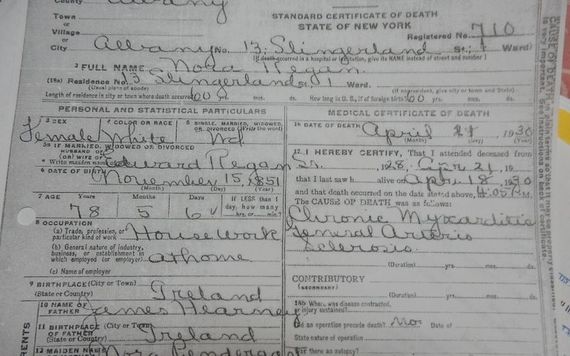 County
Albany
STANDARD CERTIFICATE OF DEATH
STATE OF NEW YORK
Town
or
Village
or
City
Albany No. 13, Slingerland St.; Ward)
Registered No. 710
(If death occurred in a hospital or institution, give its NAME instead of street and number)
2 FULL NAME Nora Regan
(18a) Residence No. 13 Slingerland St Ward.
(Usual place of abode)
(If nonresident, give city or town and State)
Length of residence in city or town where death occurred 60 yrs. mos. ds. How long in U. S., if of foreign birth? 60 yrs. mos. ds.
PERSONAL AND STATISTICAL PARTICULARS
3 SEX
4 COLOR OR RACE
5 SINGLE, MARRIED, WIDOWED, OR DIVORCED (Write the word)
Female White Wd
5a IF MARRIED, WIDOWED OR DIVORCED
HUSBAND OF
(OR) WIFE OF
Write maiden name
Edward Regan
6 DATE OF BIRTH November 15, 1851
(Month) (Day) (Year)
7 AGE Years Months Days
IF LESS than 1 day, how many hrs. or min.?
78 5 6
8 OCCUPATION
(a) Trade, profession, or particular kind of work House Work
(b) General nature of industry, business, or establishment in which employed (or employer) at home
(c) Name of employer
9 BIRTHPLACE (City or Town)
(State or Country) Ireland
10 NAME OF FATHER James Hearney
11 BIRTHPLACE OF FATHER (City or Town)
(State or Country) Ireland
12 MAIDEN NAME
Nora Pendergast
PARENTS
MEDICAL CERTIFICATE OF DEATH
16 DATE OF DEATH April 21 1930
(Month) (Day) (Year)
17. I HEREBY CERTIFY, That I attended deceased from
28, Apr 21, 19
that I last saw h alive on Apr 18, 1930
and that death occurred on the date stated above, at 4:05 P.M.
The CAUSE OF DEATH was as follows:
Chronic Myocarditis
General Arterio
Sclerosis
(Duration) yrs. mos. ds.
CONTRIBUTORY
(SECONDARY)
(Duration) yrs. mos. ds.
18b Where was disease contracted,
or injury sustained?
Did an operation precede death? No Date of
State nature of operation
Was there an autopsy?
CAUSE OF DEATH in
is very important. See instructions on back of certificate.